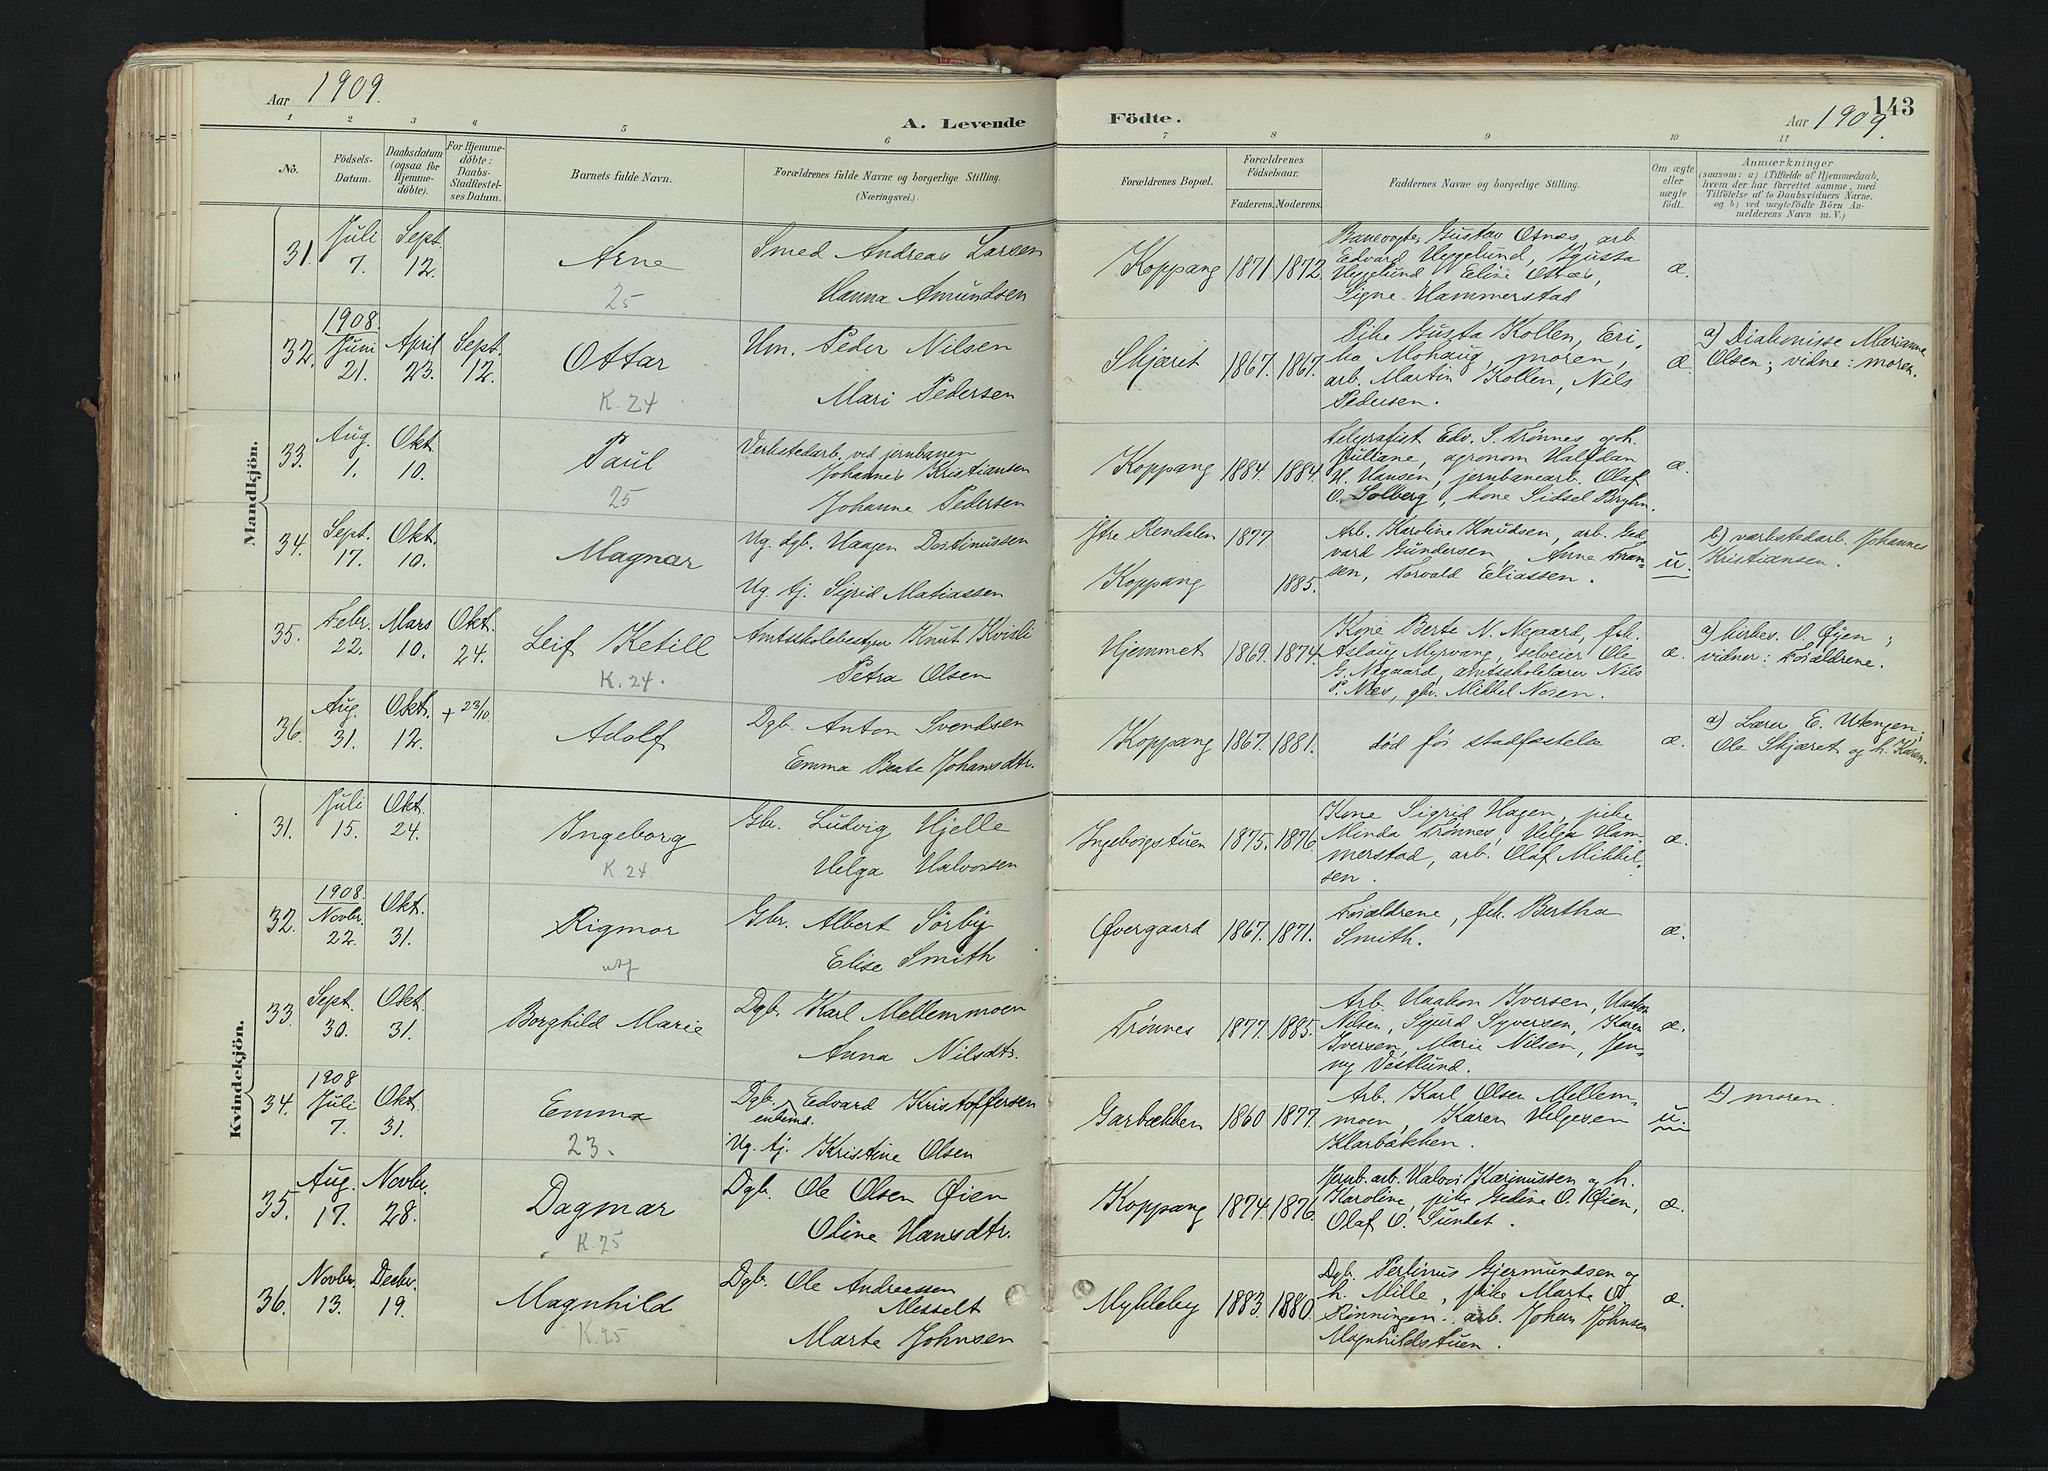 Aar 1909.
A. Levende Födte.
Aar 1909.
143
1 2 3 4 5 6 7 8 9 10 11
No.
Födsels-Datum.
Daabsdatum (ogsaa for Hjemmedöbte).
For Hjemmedöbte: Daabs-Stadfæstelses Datum.
Barnets fulde Navn.
Forældrenes fulde Navne og borgerlige Stilling.
(Næringsvei.)
Forældrenes Bopæl.
Forældrenes Födselsaar.
Faderens. Moderens.
Faddernes Navne og borgerlige Stilling.
Om ægte eller uægte födt.
Anmærkninger
(saasom: a) i Tilfælde af Hjemmedaab,
hvem der har forrettet samme, med
Tilföielse af to Daabsvidners Navne.
og b) ved uægtefödte Börn An-
melderens Navn m. V.)
Mandkjön.
31. Juli 7. Sept. 12. Arne 25
Smed Andreas Larsen
Hanna Amundsen
Koppang 1871 1872.
Banevogter Gustav Otnæs, arb.
Edvard Heggelund, Gusta
Heggelund, Eline Otnæs,
Signe Hammerstad
æ.
32. 1908. Juni 21. April 23. Sept. 12. Ottar K. 24
Hm. Peder Nilsen
Mari Pedersen
Skjæret 1867. 1867.
Pike Gusta Kollen, Eri-
ka Mohaug, moren,
arb. Martin Kollen, Nils
Pedersen.
æ.
a) Diakonisse Marianne
Olsen; vidne: moren.
33. Aug. 1. Okt. 10. Paul 25
Verkstedarb. ved jernbanen
Johannes Kristiansen
Johanne Pedersen
Koppang 1884. 1884.
Telegrafist Edv. S. Trönnes og h.
Juliane, agronom Halfdan
H. Hansen, jernbanearb. Olaf
O. Solberg, kone Sidsel
æ.
34. Sept. 17. Okt. 10. Magnar
Ug. dgb. Haagen Dortinussen
Ug. tj. Sigrid Matiassen
Ytre Rendalen 1877
Koppang 1885.
Arb. Karoline Knudsen, arb. Ed-
vard Gundersen, Anne Fran-
sen, Torvald Eliassen.
u.
b) værkstedarb. Johannes
Kristiansen.
35. Febr. 22. Mars 10. Okt. 24. Leif Ketill K. 24.
Amtsskolebestyrer Knut Kvisli
Petra Olsen
Hjemmet 1869. 1874.
Kone Berte N. Negaard, frk.
Aslaug Myrvang, selveier Ole
G. Negaard, amtsskolelærer Nils
P. Næs, gbr. Mikkel Noren.
æ.
a) kirkes. O. Øyen;
vidner: Forældrene.
36. Aug. 31. Okt. 12. + 23/10. Adolf
Dgb. Anton Svendsen
Emma Beate Johansdtr.
Koppang 1867. 1881.
död för stadfæstelse
æ.
a) Lærer E. Utengen;
Ole Skjæret og h. Karen.
Kvindekjön.
31. Juli 15. Okt. 24. Ingeborg K. 24
Gbr. Ludvig Hjelle
Helga Halvorsen
Ingeborgstuen 1875. 1876.
Kone Sigrid Hagen, pike
Minda Trönnes, Helga Ham-
merstad, arb. Olaf Mikkel-
sen.
æ.
32. 1908. Novbr. 22. Okt. 31. Rigmor utf
Gbr. Albert Sörby
Elise Smith
Øvergaard 1867. 1871.
Forældrene, frk. Bertha
Smith.
æ.
33. Sept. 30. Okt. 31. Borghild Marie
Dgb. Karl Mellemmoen
Anna Nilsdtr.
Trönnes 1877. 1885.
Arb. Haakon Iversen, Haakon
Nilsen, Sigurd Syversen, Karen
Iversen, Marie Nilsen, Jen-
ny Vestlund.
æ.
34. 1908 Juli 7. Okt. 31. Emma 23.
Dgb. enkemd. Edvard Kristoffersen
Ug. tj. Kristine Olsen
Garbækken 1860 1877.
Arb. Karl Olsen Mellem-
moen, Karen Helgesen
Klarbækken.
u.
b) moren.
35. Aug. 17. Novbr. 28. Dagmar K. 25
Dgb. Ole Olsen Øien
Oline Hansdtr.
Koppang 1874. 1876.
Jernb. arb. Halvor Rasmussen og h.
Karoline, pike Gedine O. Øien,
Olaf O. Sundet.
æ.
36. Novbr. 13. Decbr. 19. Magnhild K. 25
Dgb. Ole Andreassen
Messelt
Marte Johnsen
Mykleby 1883. 1880.
Dgb. Perlinus Gjermundsen og
h. Mille, pike Marte O
Rönningen, arb. Johan Johnsen
Magnhildstuen.
æ.